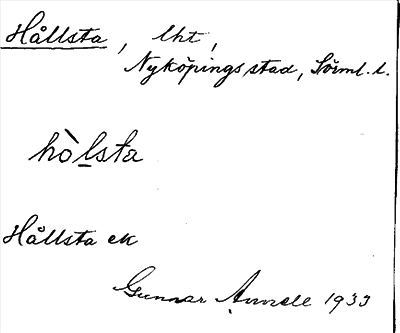 Hållsta, lht,
Nyköpings stad, Sörml. l.
hò̀lsta
Hållsta ek
Gunnar Annell 1933